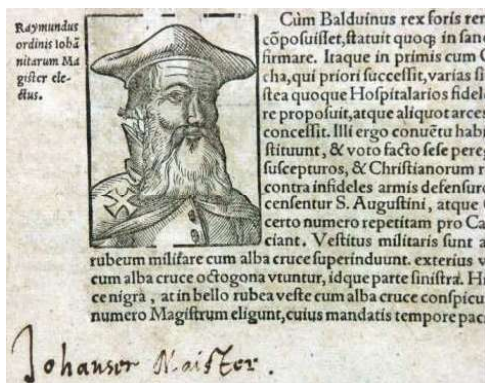 Raymundus
ordinis Iohā
nitarum Ma
gister ele-
ctus.
Cùm Balduinus rex foris rer
cōposuisset, statuit quoq; in sanc
firmare. Itaque in primis cum G
cha, qui priori successit, varias si
stea quoque Hospitalarios fidele
re proposuit, atque aliquot arces
concessit. Illi ergo conuētu habi
stituunt, & voto facto sese pereg
suscepturos, & Christianorum r
contra infideles armis defensuro
censentur S. Augustini, atque
certo numero repetitam pro Ca
ciant. Vestitus militaris sunt a
rubeum militare cum alba cruce superinduunt. exterius v
cum alba cruce octogona vtuntur, idque parte sinistra. Hi
ce nigra, at in bello rubea veste cum alba cruce conspicu
numero Magistrum eligunt, cuius mandatis tempore paci
Johanser Maister.